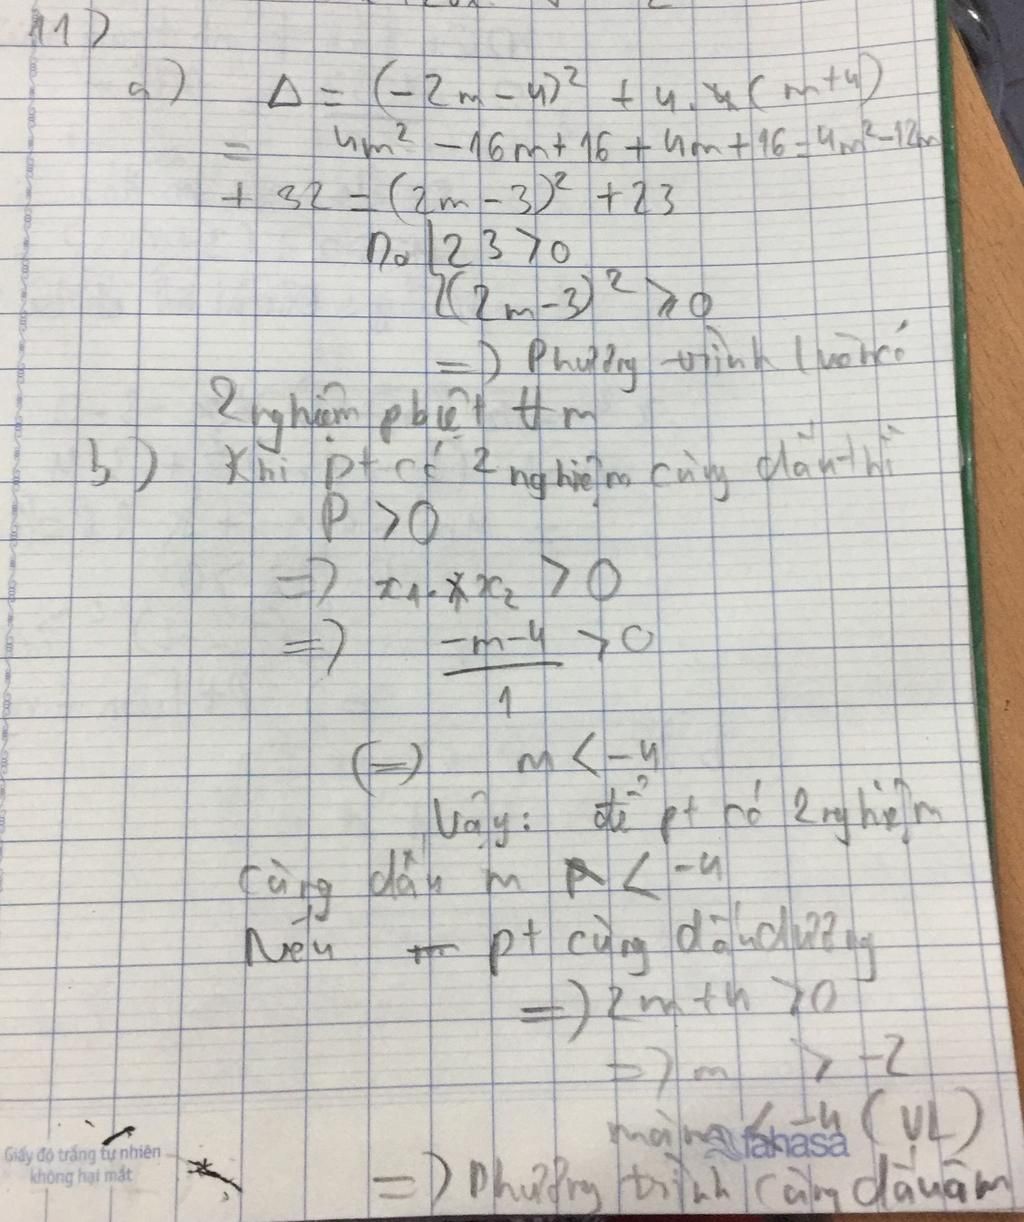 11)
a) Δ = (-2m-4)² + 4.(m+4)
= 4m² - 16m + 16 + 4m + 16 = 4m² - 12m
+ 32 = (2m-3)² + 23
Do { 23 > 0
(2m-3)² ≥ 0
=) Phương trình luôn có
2 nghiệm pbiệt ∀m
b) Khi pt có 2 nghiệm cùng dấu thì
P > 0
=) x₁.x₂ > 0
=) (-m-4)/1 > 0
(=) m < -4
Vậy: để pt có 2 nghiệm
cùng dấu m < -4
Nếu pt cùng dấu dương
=) 2m+4 > 0
=) m > -2
mà m < -4 (VL)
fahasa
Giấy độ trắng tự nhiên
không hại mắt
=) Phương trình cùng dấu âm